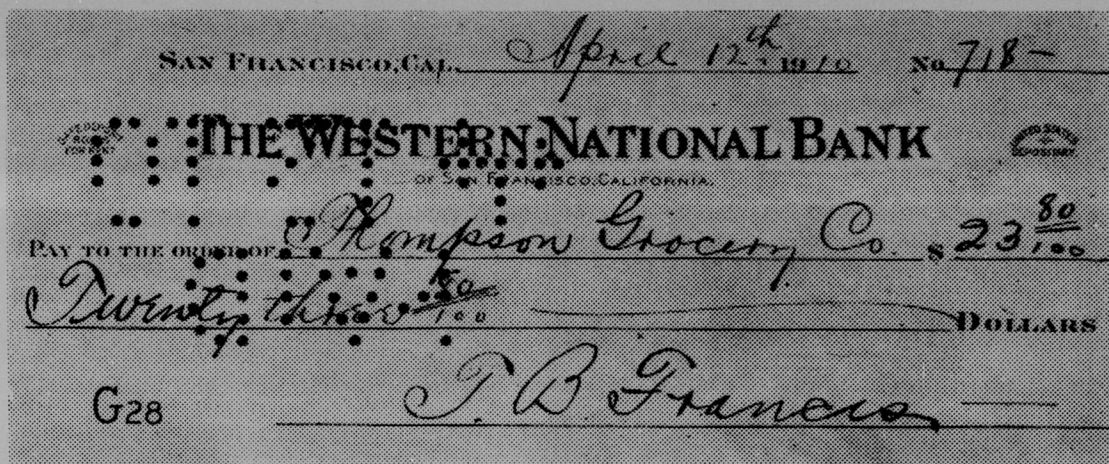 SAN FRANCISCO, CAL. April 12th 1910 No. 718-
THE WESTERN NATIONAL BANK
UNITED STATES DEPOSITARY
OF SAN FRANCISCO, CALIFORNIA.
PAY TO THE ORDER OF Thompson Grocery Co. $ 23 80/100
Twenty three 80/100 DOLLARS
G28
T. B. Francis